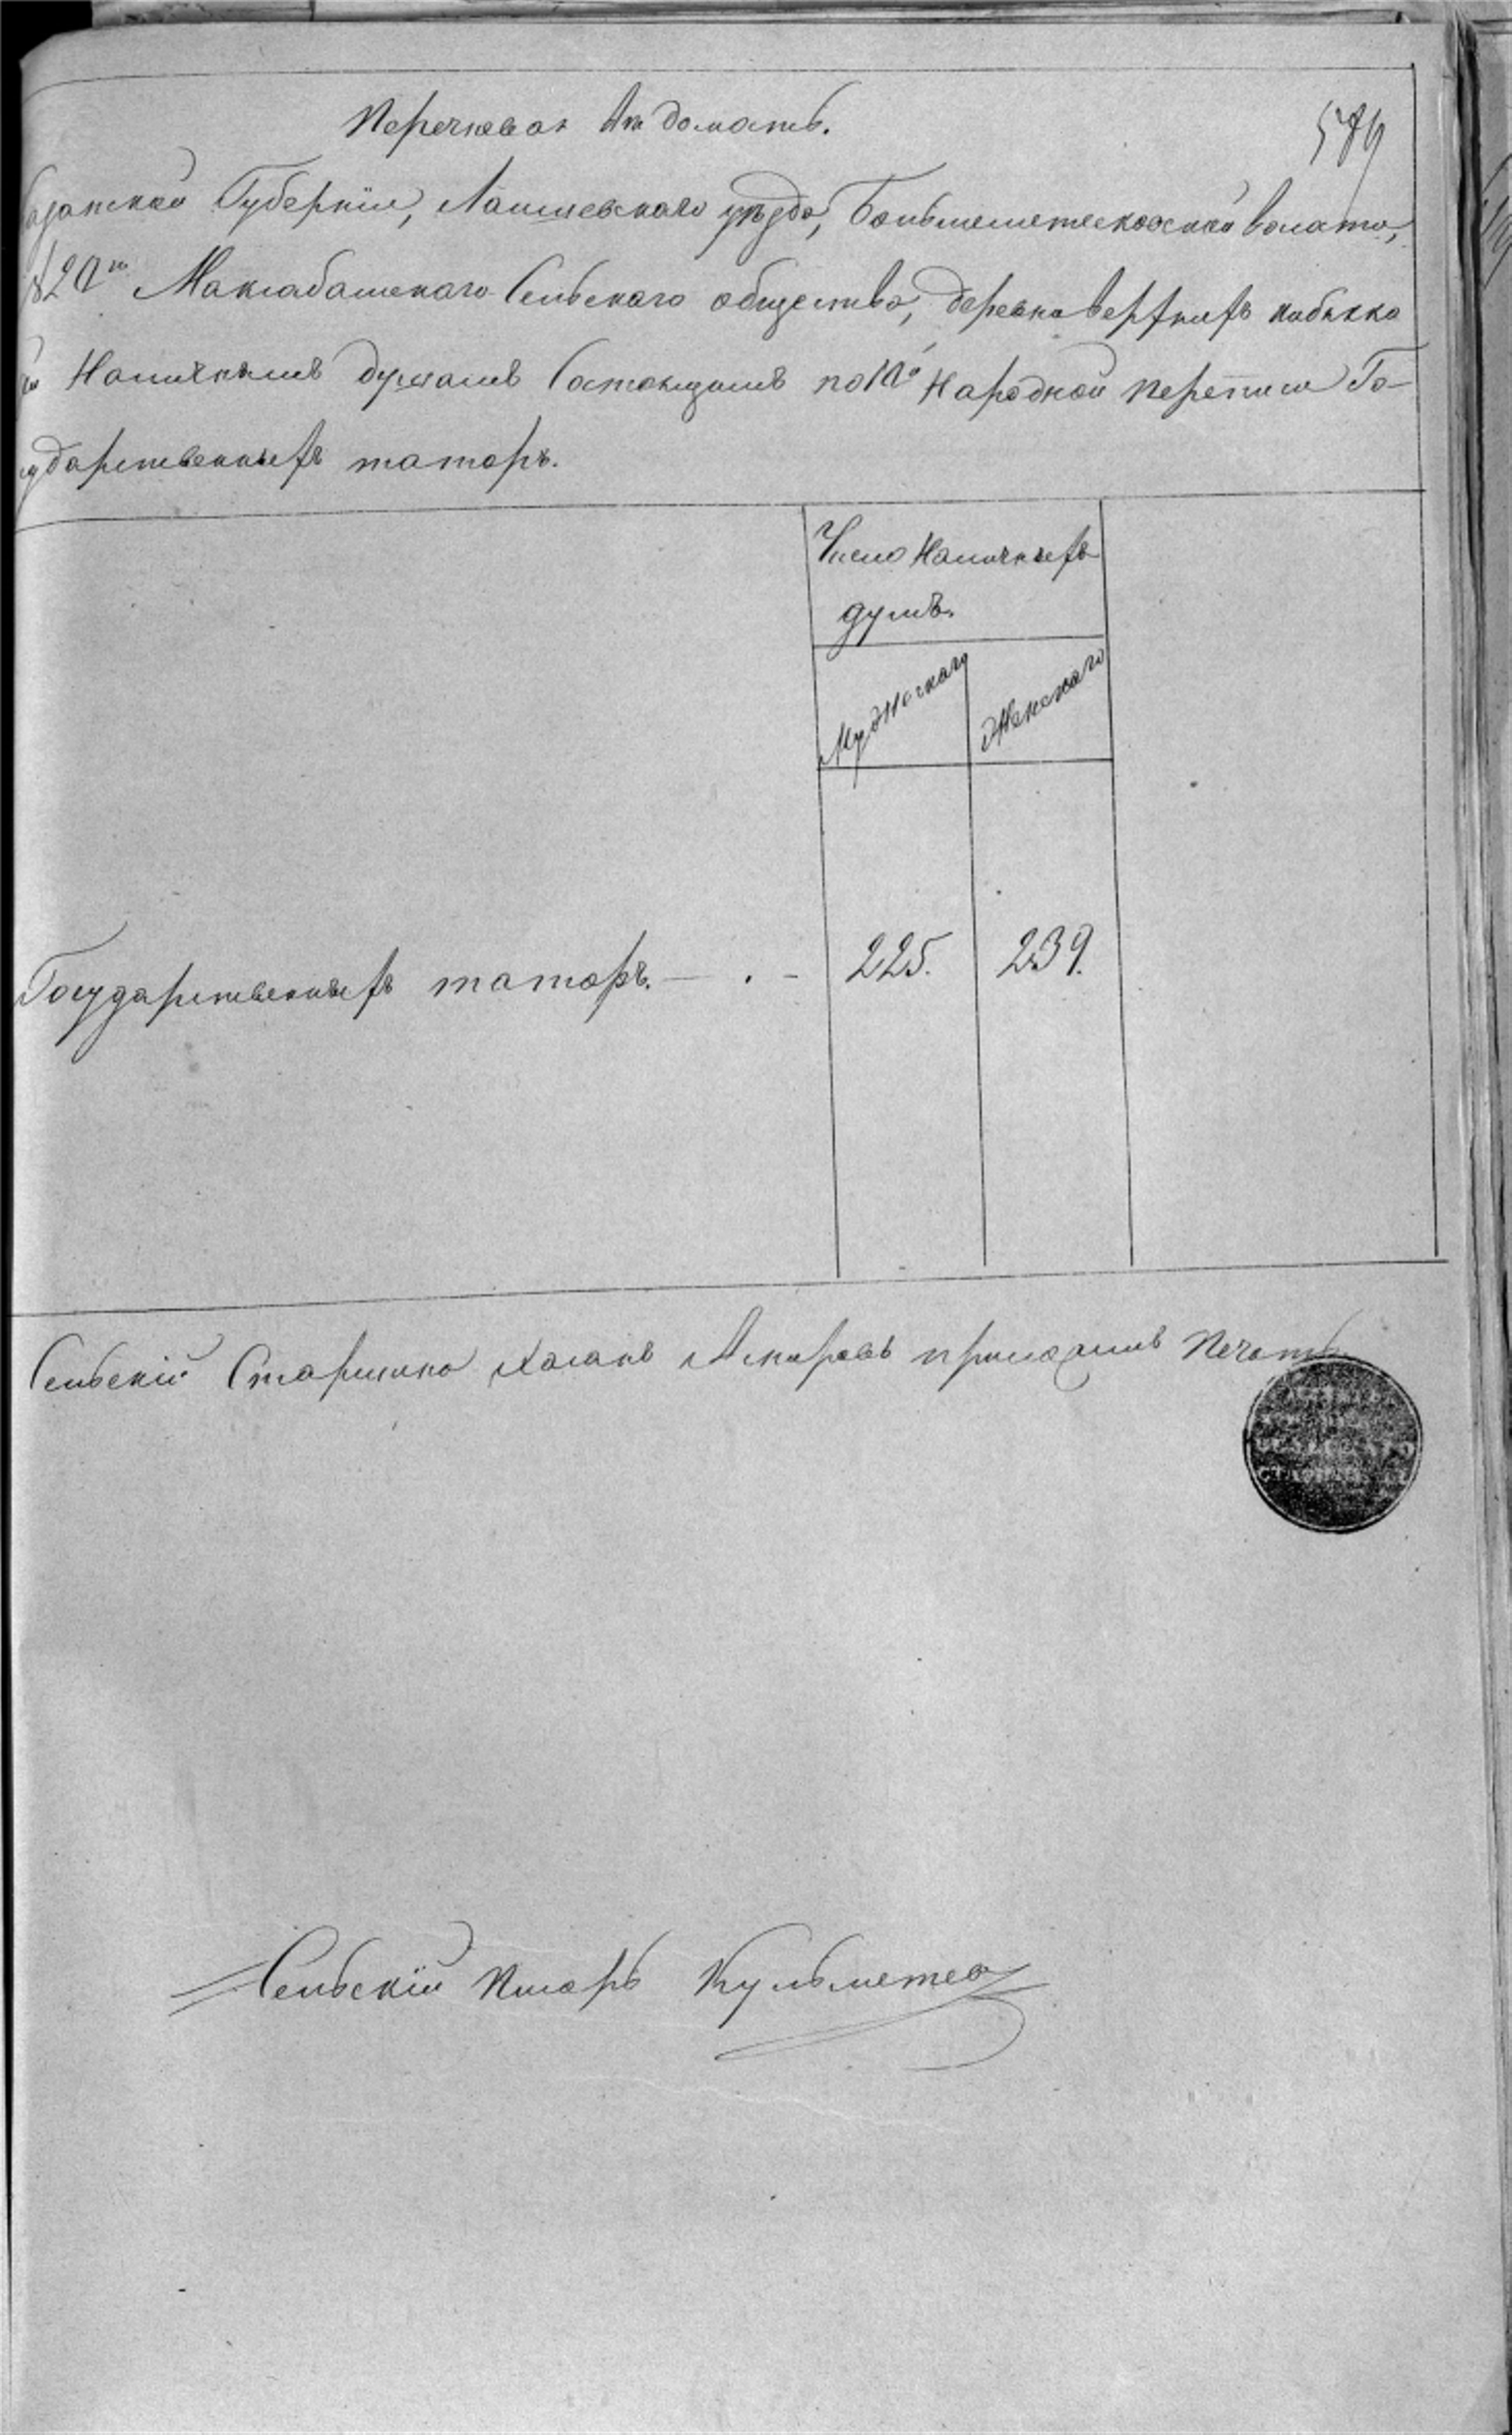 Перечневая Ведомость.
579
Казанской Губернiи, Лаишевскаго уезда, Большеметесковской волости,
№ 20го Максабашскаго Сельскаго общества, деревни Верхнихъ Кибякко
зи Наличнымъ душамъ Состоящимъ по 10й Народной переписи Го-
сударственныхъ татаръ.
Число Наличныхъ
душъ.
Мужскаго
Женскаго
Государственныхъ татаръ. — . — 225. 239.
Сельскiй Старшина Хасанъ Аскаровъ приложилъ Печать
Сельскiй Писарь Кульметев